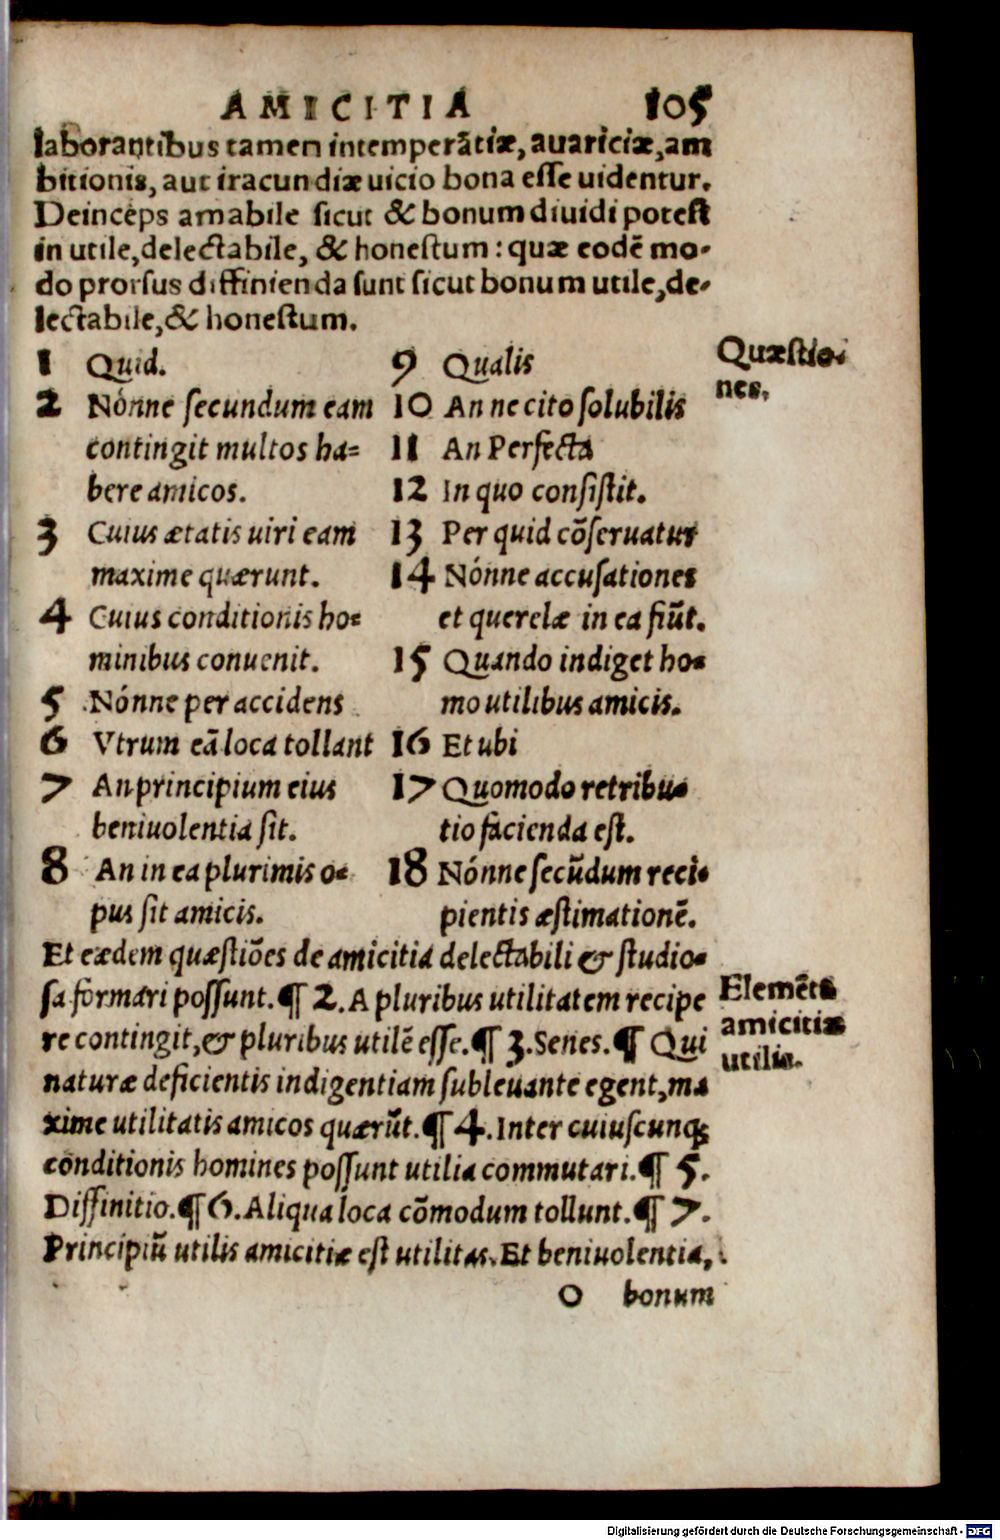 AMICITIA 105
laborantibus tamen intemperātiæ, auariciæ, am
bitionis, aut iracundiæ uicio bona esse uidentur.
Deinceps amabile sicut & bonum diuidi potest
in utile, delectabile, & honestum: quæ eodē mo-
do prorsus diffinienda sunt sicut bonum utile, de-
lectabile, & honestum.
Quæstio-
nes.
1 Quid.
2 Nónne secundum eam
contingit multos ha=
bere amicos.
3 Cuius ætatis uiri eam
maxime quærunt.
4 Cuius conditionis ho=
minibus conuenit.
5 Nónne per accidens
6 Vtrum eā loca tollant
7 An principium eius
beniuolentia sit.
8 An in ea plurimis o=
pus sit amicis.
9 Qualis
10 An ne cito solubilis
11 An Perfecta
12 In quo consistit.
13 Per quid cōseruatur
14 Nónne accusationes
et querelæ in ea fiūt.
15 Quando indiget ho=
mo utilibus amicis.
16 Et ubi
17 Quomodo retribu=
tio facienda est.
18 Nónne secūdum reci=
pientis æstimationē.
Et eædem quæstiōes de amicitia delectabili & studio=
sa formari possunt. ¶ 2. A pluribus utilitatem recipe
re contingit, & pluribus utilē esse. ¶ 3. Senes. ¶ Qui
naturæ deficientis indigentiam subleuante egent, ma
xime utilitatis amicos quærūt. ¶ 4. Inter cuiuscunq;
conditionis homines possunt utilia commutari. ¶ 5.
Diffinitio. ¶ 6. Aliqua loca cōmodum tollunt. ¶ 7.
Principiū utilis amicitiæ est utilitas. Et beniuolentia,
Elemēta
amicitiæ
utilis.
O bonum
Digitalisierung gefördert durch die Deutsche Forschungsgemeinschaft - DFG